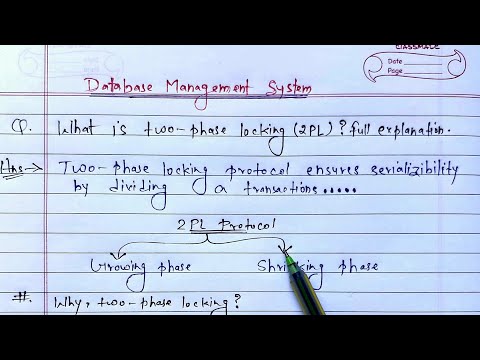 CLASSMATE
Date
Page
Database Management System
Q. What is two-phase locking (2PL)? full explanation.
Ans→ Two-phase locking protocol ensures serializibility
by dividing a transactions.....
2 PL Protocol
Growing phase Shrinking phase
#. Why, two-phase locking?